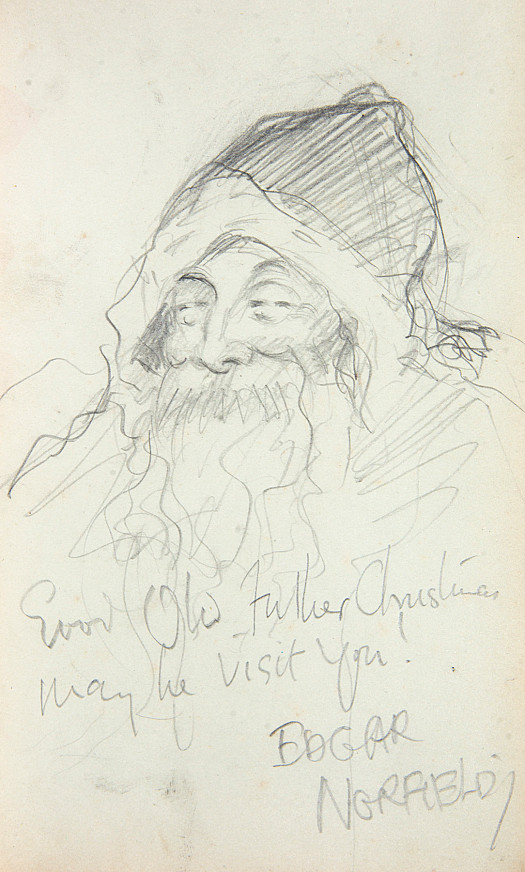 Good Old Father Christmas
may he visit you!
EDGAR
NORFIELD